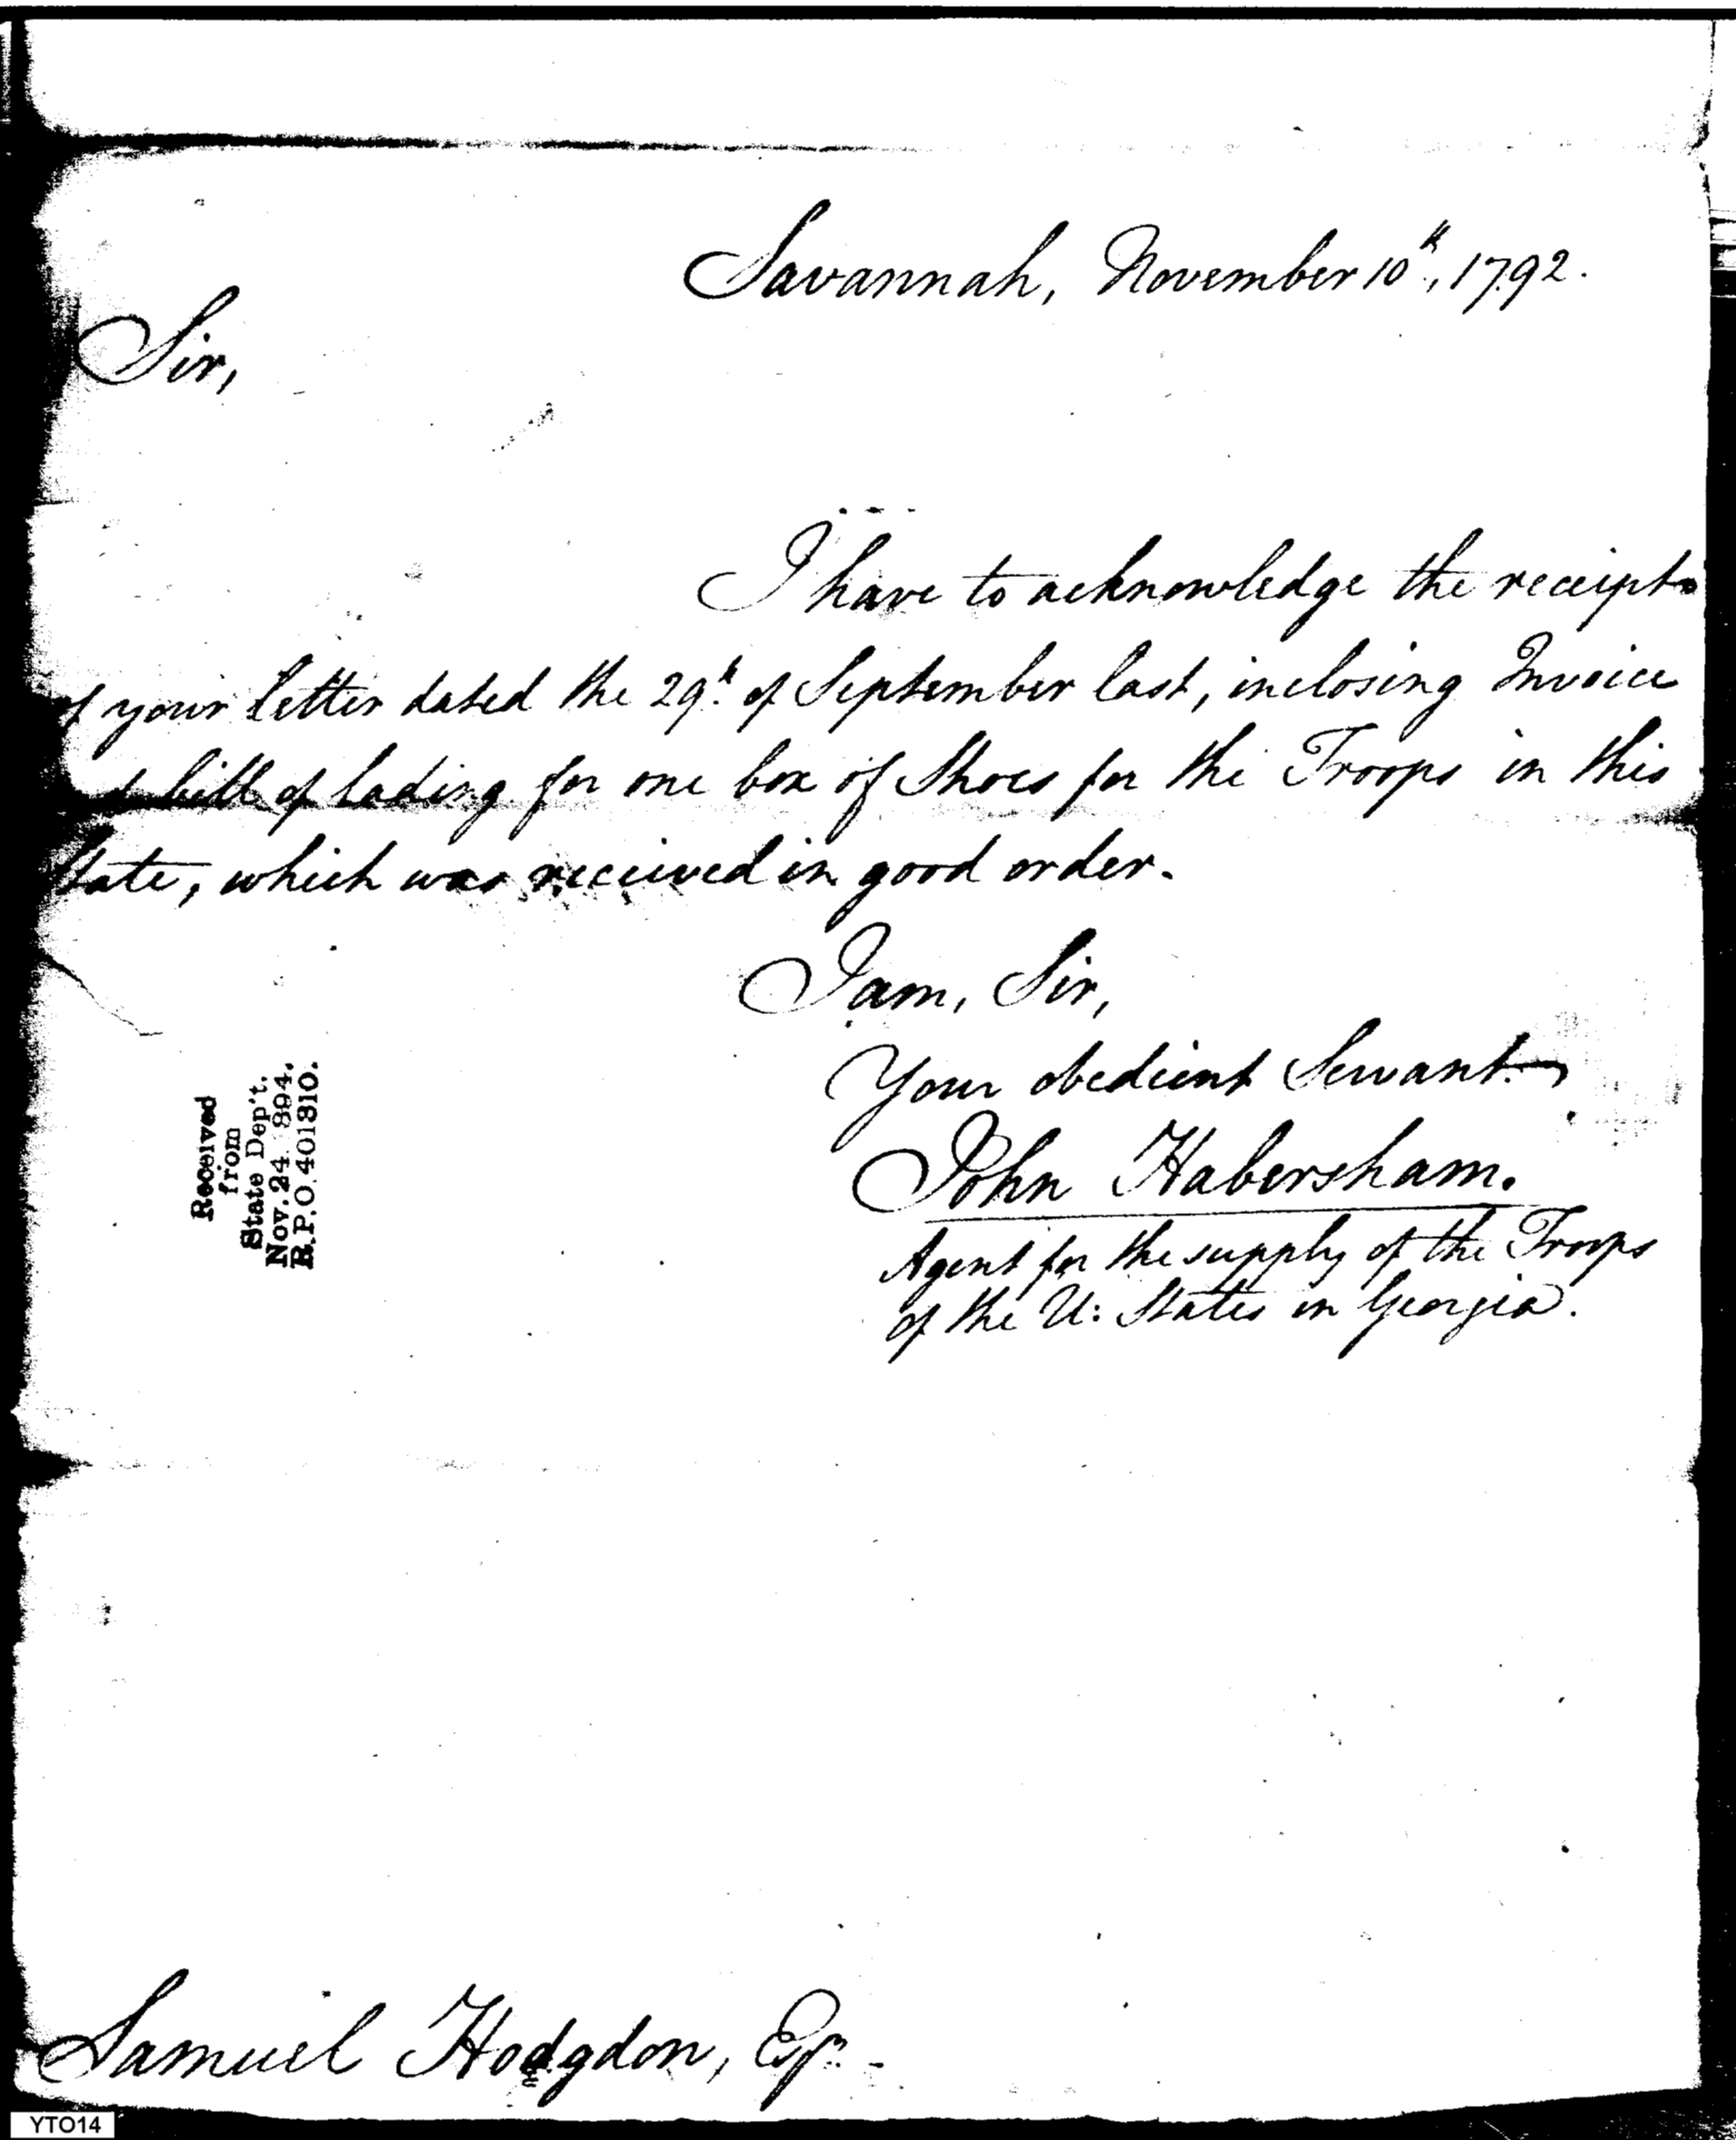 Savannah, November 10th, 1792.
Sir,
I have to acknowledge the receipt
of your letter dated the 29th of September last, inclosing Invoice
& bill of lading for one box of Shoes for the Troops in this
State, which was received in good order.
I am, Sir,
Your obedient Servant
John Habersham.
Agent for the supply of the Troops
of the U: States in Georgia.
Received
from
State Dep't.
Nov. 24 894,
R.P.O. 401810.
Samuel Hodgdon, Esqr.
YTO14